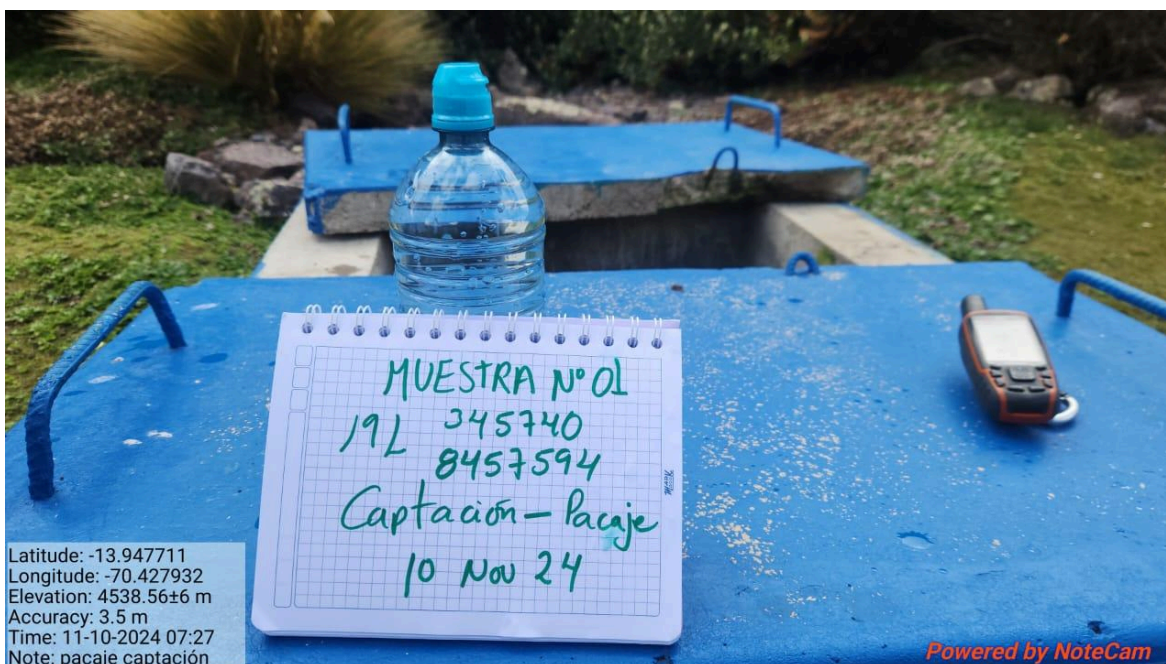 MUESTRA N° 01
19L 345740
8457594
Captación - Pacaje
10 Nov 24
Latitude: -13.947711
Longitude: -70.427932
Elevation: 4538.56±6 m
Accuracy: 3.5 m
Time: 11-10-2024 07:27
Note: pacaje captación
Powered by NoteCam